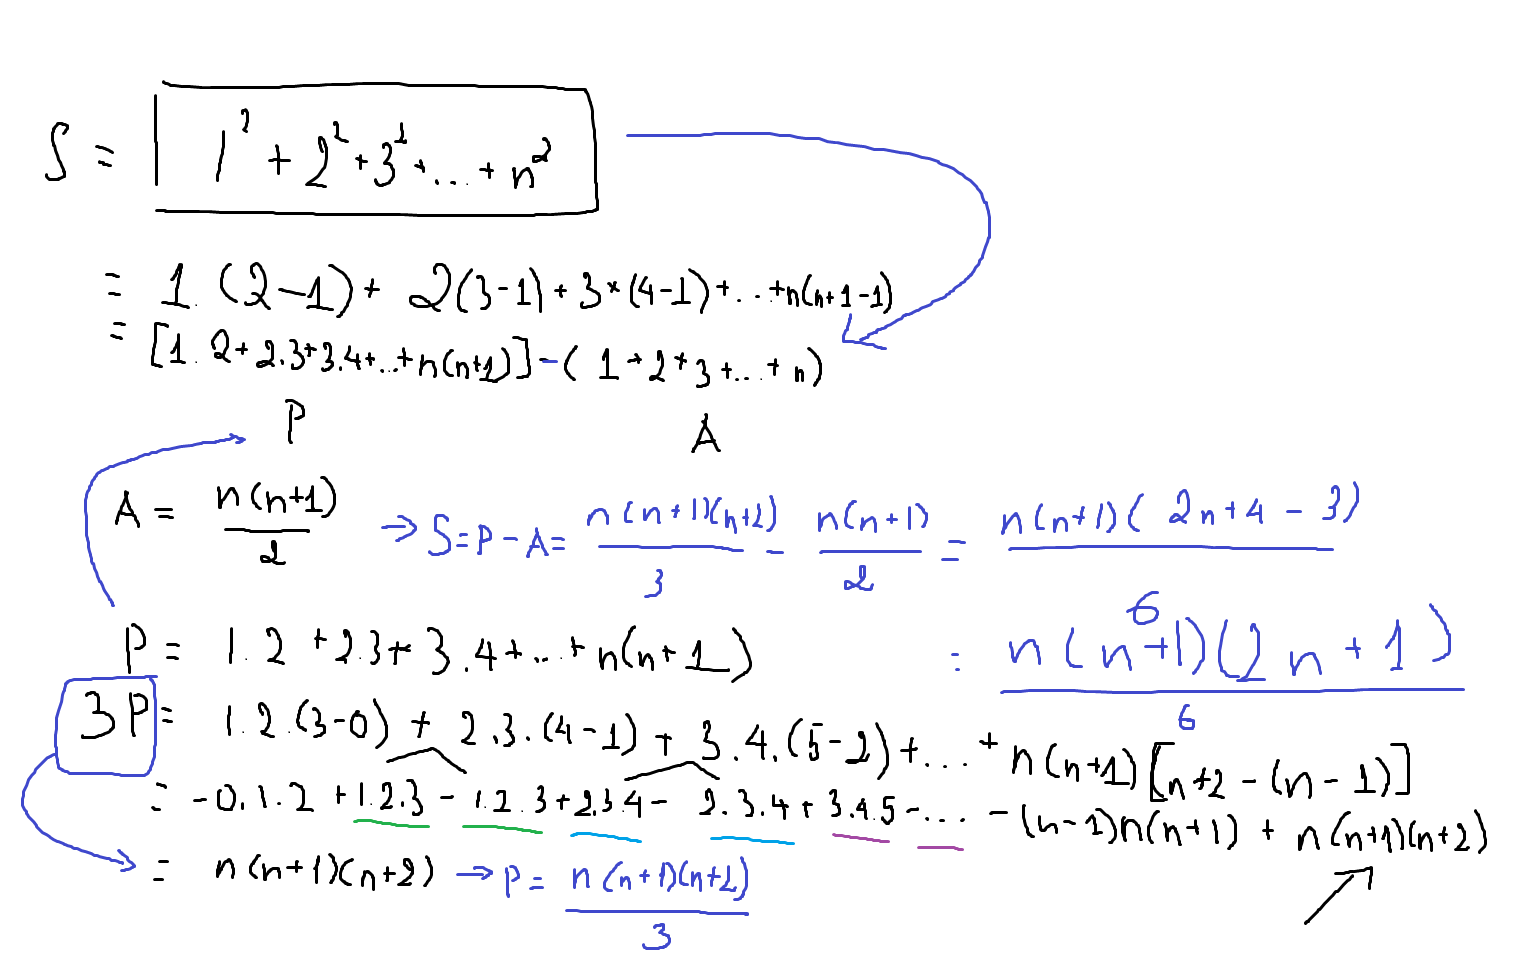 S = 1² + 2² + 3² + ... + n²
= 1.(2-1) + 2(3-1) + 3×(4-1) + ... + n(n+1-1)
= [1.2 + 2.3 + 3.4 + ... + n(n+1)] - (1 + 2 + 3 + ... + n)
P A
A = n(n+1)/2 → S = P - A = n(n+1)(n+2)/3 - n(n+1)/2 = n(n+1)(2n+4-3)/6
P = 1.2 + 2.3 + 3.4 + ... + n(n+1)
= n(n+1)(2n+1)/6
3P = 1.2.(3-0) + 2.3.(4-1) + 3.4.(5-2) + ... + n(n+1)[n+2-(n-1)]
= -0.1.2 + 1.2.3 - 1.2.3 + 2.3.4 - 2.3.4 + 3.4.5 - ... - (n-1)n(n+1) + n(n+1)(n+2)
= n(n+1)(n+2) → P = n(n+1)(n+2)/3